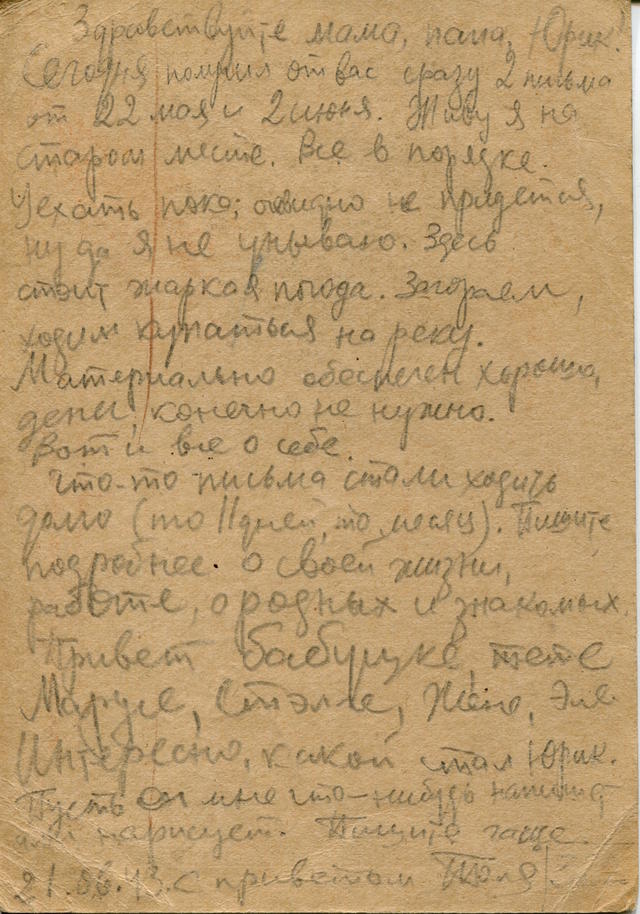 Здравствуйте мама, папа, Юрик!
Сегодня получил от вас сразу 2 письма
от 22 мая и 2 июня. Живу я на
старом месте. Все в порядке.
Уехать пока, очевидно не придется,
ну да я не унываю. Здесь
стоит жаркая погода. Загораем,
ходим купаться на реку.
Материально обеспечен хорошо,
денег, конечно не нужно.
Вот и все о себе.
Что-то письма стали ходить
долго (то 11 дней, то месяц). Пишите
подробнее о своей жизни,
работе, о родных и знакомых.
Привет бабушке, тете
Марусе, Стэлле, Жене, Эле
Интересно, какой стал Юрик.
Пусть он мне что-нибудь напишет
или нарисует. Пишите чаще.
21.06.43. с приветом Толя